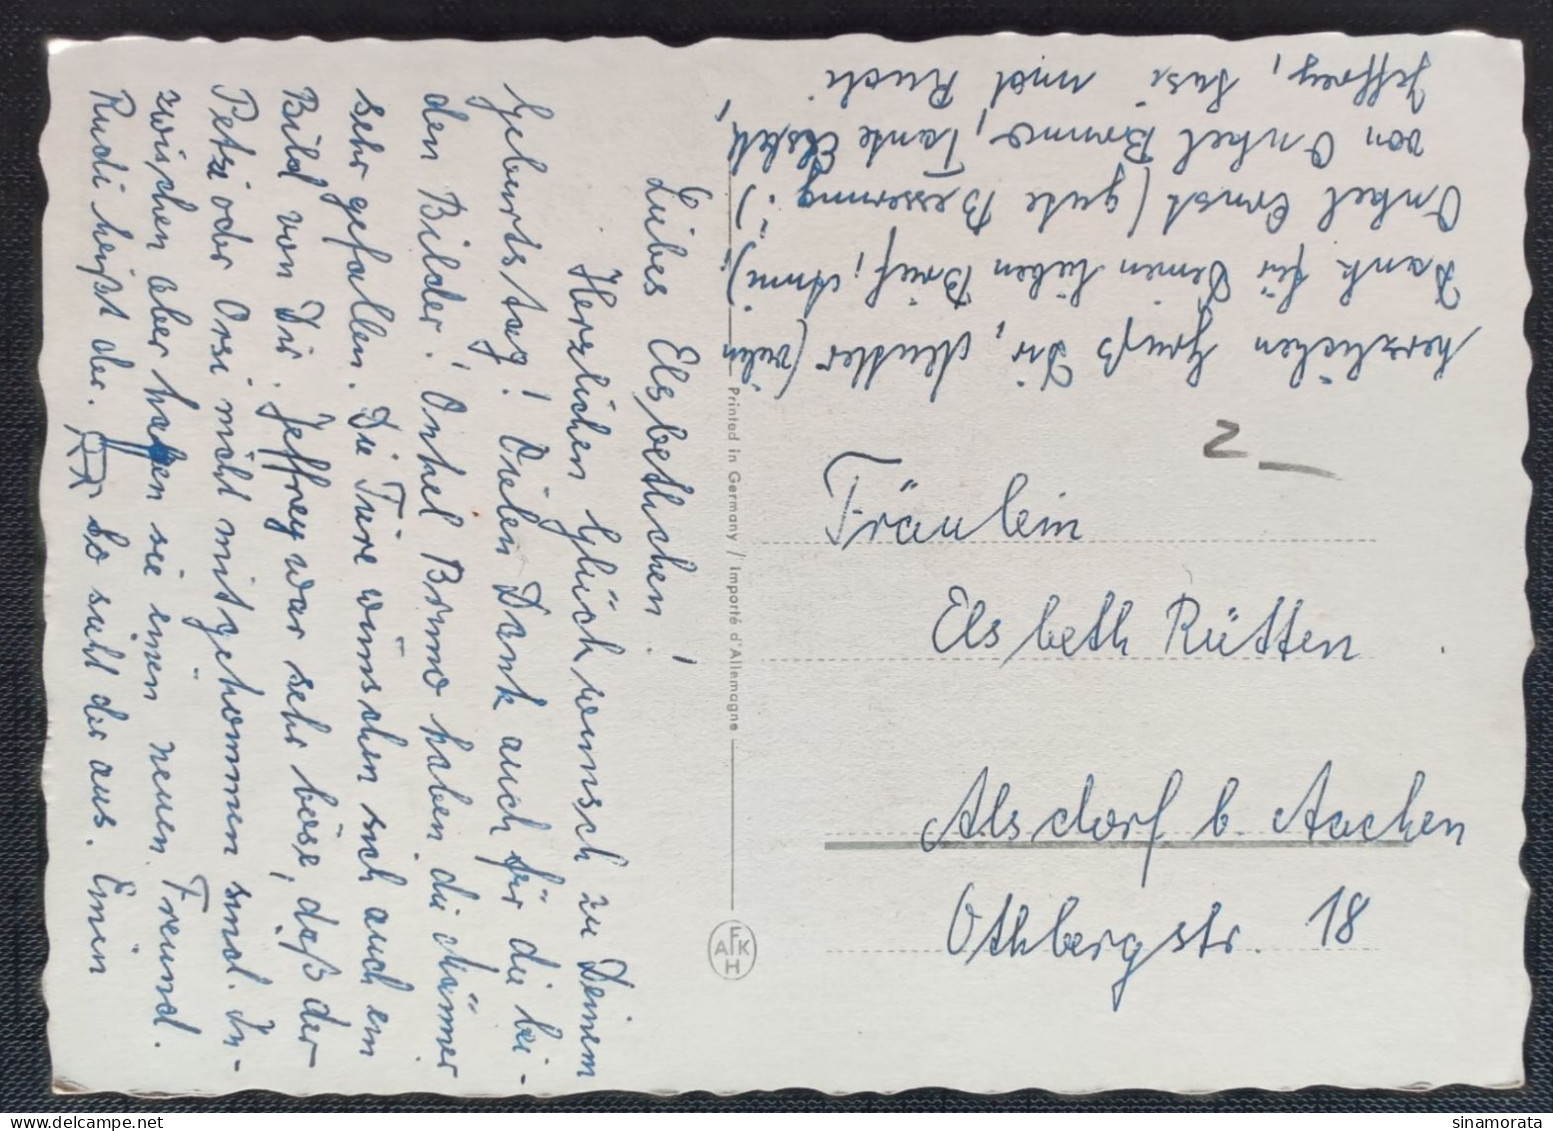 Liebes Elsbethchen!
Herzlichen Glückwunsch zu Deinem
Geburtstag! Vielen Dank auch für die bei-
den Bilder. Onkel Bruno haben die Männer
sehr gefallen. Die Türe wünschen sich auch ein
Bild von Dir. Jeffrey war sehr böse, daß der
Petzi oder Orsi nicht mitgekommen sind. In-
zwischen aber haben sie einen neuen Freund.
Rudi heißt der. So sieht der aus. Einen
herzlichen Gruß Dir, Mutter (vielen
Dank für Deinen lieben Brief, Anni),
Onkel Ernst (gute Besserung!)
von Onkel Bruno, Tante Elsbeth,
Jeffrey, Susi und Rudi
Printed in Germany / Importé d'Allemagne
AFKH
2 —
Fräulein
Elsbeth Rütten
Alsdorf b. Aachen
Othbergstr. 18
sinamorata